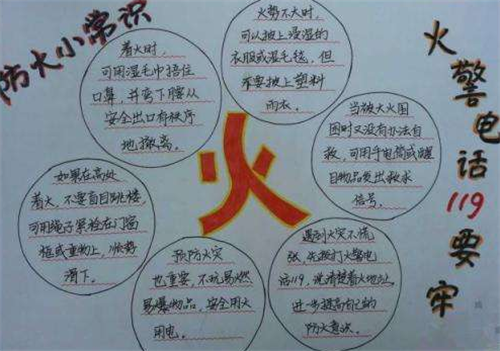 防火小常识
着火时,
可用湿毛巾捂住
口鼻,并弯下腰从
安全出口有秩序
地撤离。
火势不大时,
可以披上浸湿的
衣服或湿毛毯,但
不要披上塑料
雨衣。
当被大火围
困时又没有办法自
救,可用手电筒或醒
目物品发出求救
信号。
如果在高处
着火,不要盲目跳楼,
可用绳子紧栓在门窗
框或重物上,顺势
滑下。
火
预防火灾
也重要,不玩易燃
易爆物品,安全用火
用电。
遇到火灾不慌
张,先拨打火警电
话119,说清楚着火地址,
进一步提高自己的
防火意识。
火警电话119要牢